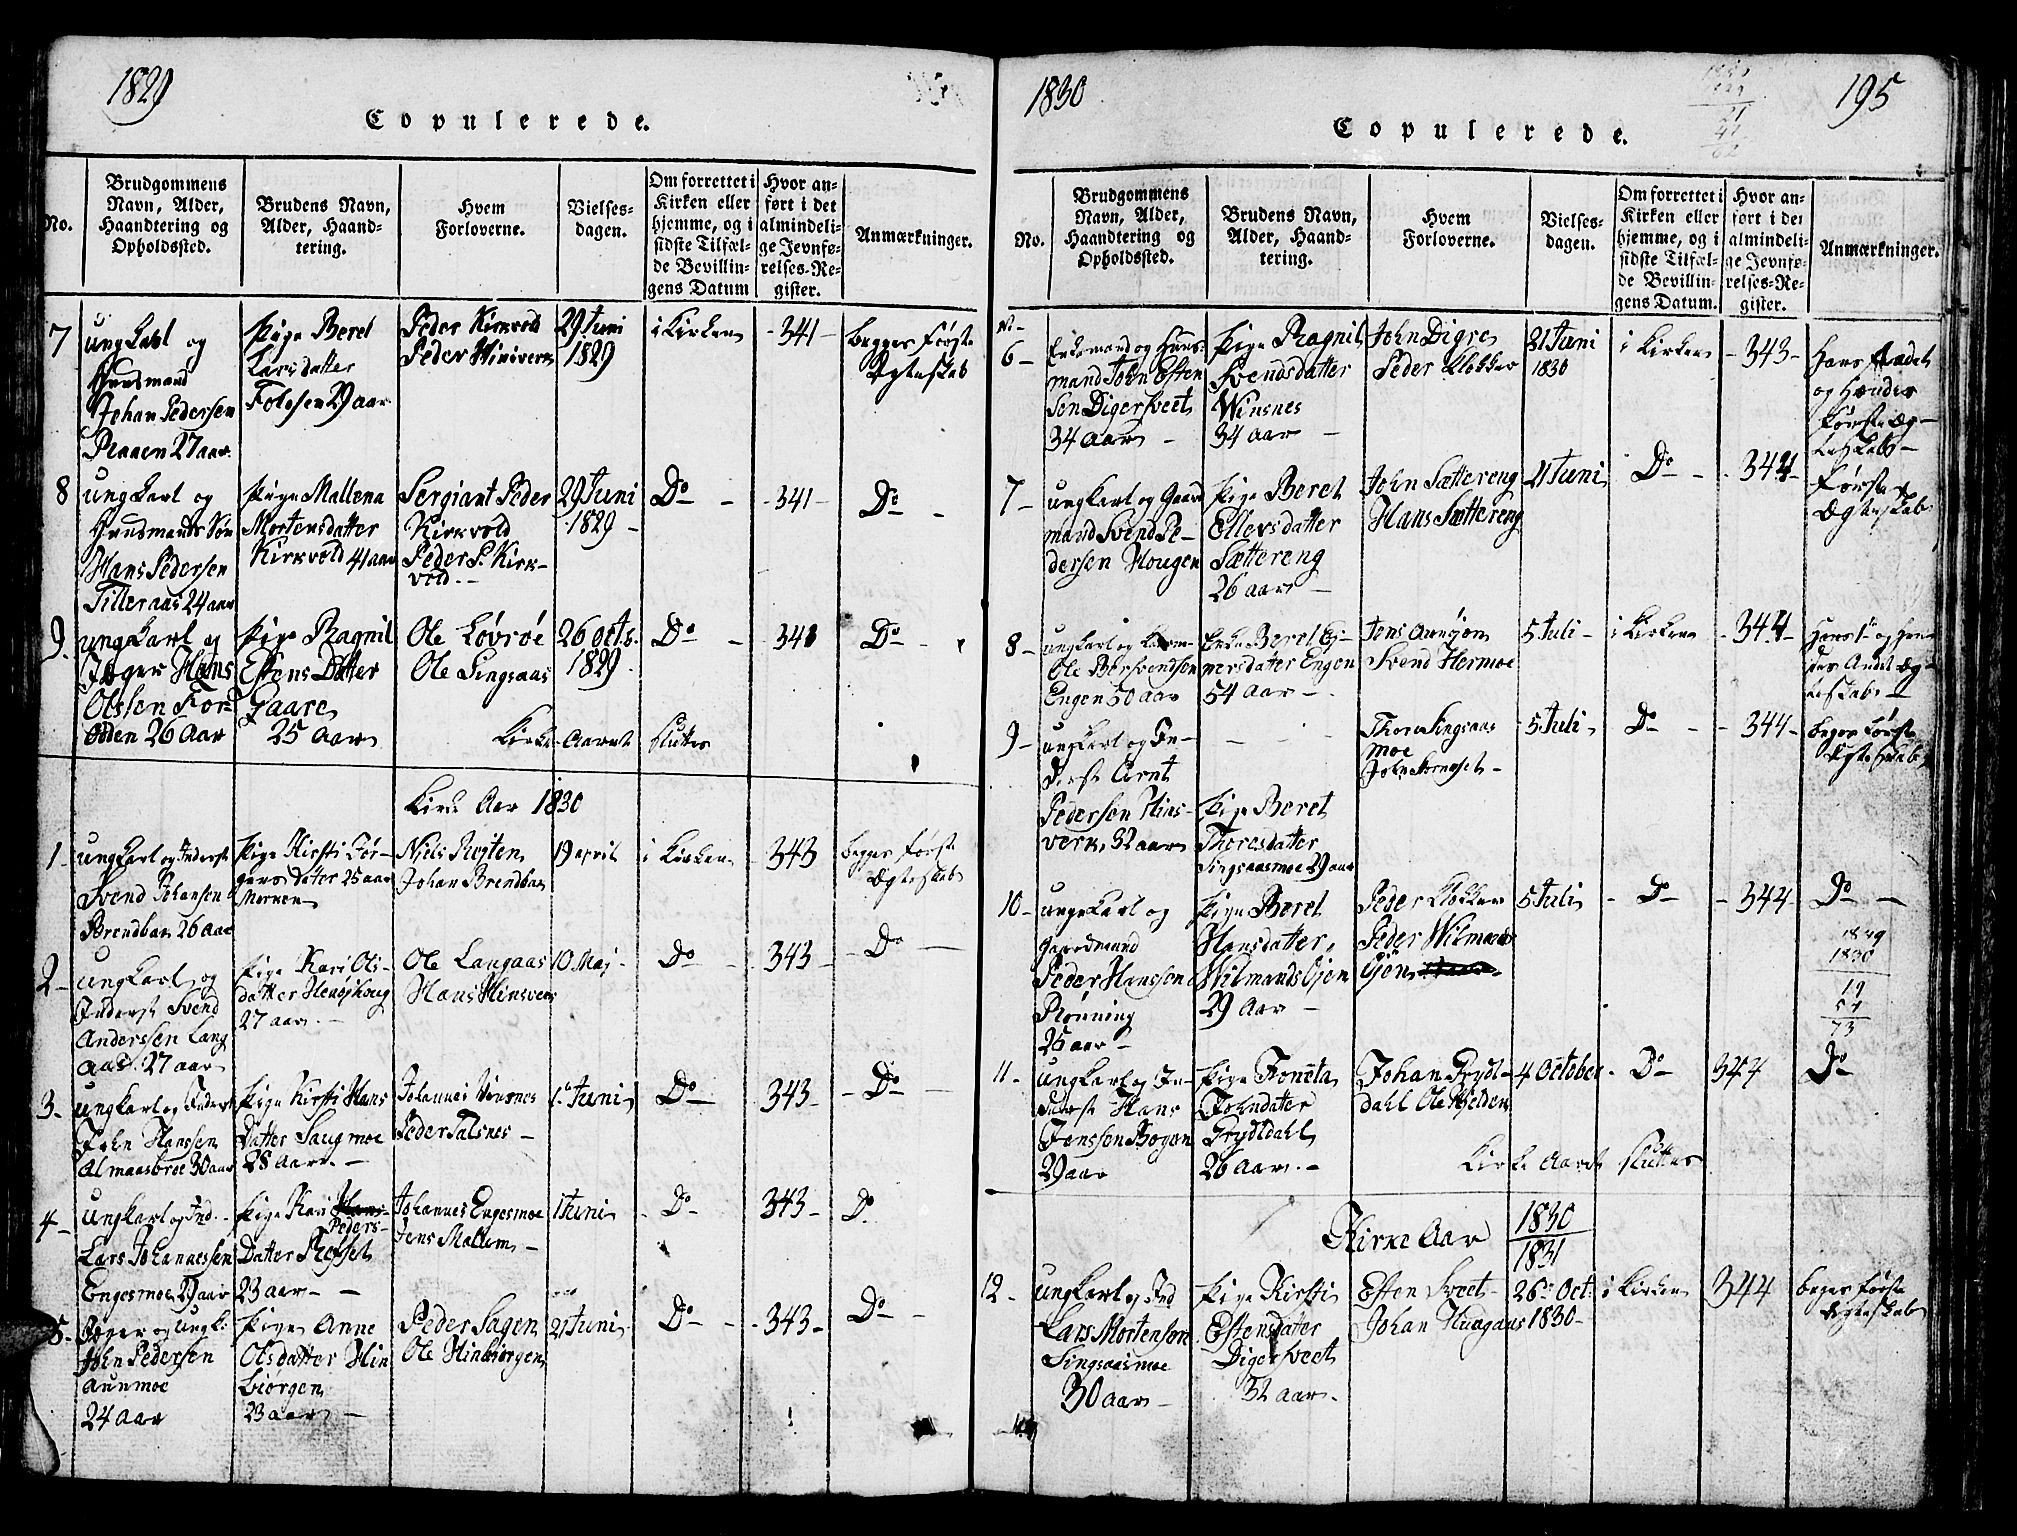 1829
Copulerede.
No.
Brudgommens Navn, Alder, Haandtering og Opholdssted.
Brudens Navn, Alder, Haandtering.
Hvem Forloverne.
Vielsesdagen.
Om forrettet i Kirken eller hjemme, og i sidste Tilfælde Bevillingens Datum
Hvor anført i det almindelige Jevnførelses-Register.
Anmærkninger.
7
ungkarl og
Huusmand
Johan Pedersen
Raaen 27 aar
Pige Beret
Larsdatter
Folosen 29 aar
Peder Kirkvold
Peder Winsvern
29 Juni
1829
i Kirken
- 341 -
begges Første
Ægteskab
8
ungkarl og
Huusmands Søn
Hans Pedersen
Tilleraas 24 aar
Pige Mallena
Mortensdatter
Kirkvold 41 aar
Sergiant Peder
Kirkvold
Peder P. Kirk-
vold. -
29 Juni
1829 -
Do -
- 341 -
Do -
9.
ungkarl og
Jæger Hans
Olssen For-
odden 26 Aar
Pige Ragnil
Estens Datter
Gaare
25 Aar
Ole Løvrøe
Ole Singsaas
26 octs.
1829.
Do -
- 341
Do -
Kirke Aaret slutter
Kirke Aar 1830
1 -
ungkarl og Inderst
Svend Johansen
Brendbak 26 aar
Pige Kirsti Jør-
gensdatter 25 aar
Morken
Niels Rogten
Johan Brendbak
19 april
i Kirken
- 343
begges første
Ægteskab
2 -
ungkarl og
Inderst Svend
Anderssen Lang
aas. 27 aar
Pige Kari Ols-
datter
27 aar. -
Ole Langaas
Hans Hinsvern
10 Maj -
Do -
343 -
Do -
3 -
ungkarl og Inderst
John Hanssen
Almaasbroe 30 aar
Pige Kirsti Hans
Datter Saugmoe
28 Aar. -
Johannes
Peder Talsnes -
1. Juni
Do -
343 -
- Do -
4 -
Ungkarl og Ind. -
Lars Johannessen
Engesmoe 29 aar
Pige Kari Hans
Peders-
Datter Røsset
23 aar - -
Johannes Engesmoe
Jens Mallem -
1 Juni
- Do -
343 -
Do.
5 -
Jæger og ungk:
John Pedersen
Aunmoe
24 Aar
Pige Anne
Olsdatter Hin
biørgen
23 aar -
Peder Sagen
Ole Hinbiørgen
21 Juni
- Do -
- 343 -
Do -
1830
195
Copulerede.
No.
Brudgommens Navn, Alder, Haandtering og Opholdssted.
Brudens Navn, Alder, Haandtering.
Hvem Forloverne.
Vielsesdagen.
Om forrettet i Kirken eller hjemme, og i sidste Tilfælde Bevillingens Datum.
Hvor anført i det almindelige Jevnførelses-Register.
Anmærkninger.
6 -
Enkemand og Huus-
mand John Esten
sen Digersveet
34 Aar -
Pige Ragnil
Svendsdatter
Winsnes
34 aar -
John Digre
Peder Klokker
21 Juni
1830
i Kirken
- 343 -
Hans Andet
og Hendes
første Æg-
teskab -
7 -
ungkarl og Gaard
mand Svend Pe-
dersen Hougen
Pige Beret
Ellevsdatter
Sættereng
26 aar -
John Sættereng
Hans Sættereng
21 Juni
Do -
- 344 -
Første
Ægteskab
8 -
ungkarl og
Ole Bersvendsen
Engen 50 aar
Enke Beret Ej-
nersdatter Engen
54 Aar -
Jens Aunøjen
Svend Hermoe
5 Juli -
i Kirken
- 344 -
Hans 1ste og Hen
des Andet Æg-
teskab -
9 -
ungkarl og In-
derst Arnt
Pedersen Hins-
verk, 32 aar
Pige Beret
Thoresdatter
Singsaasmoe 29 aar
Thore Singsaas
moe
John
5 Juli -
Do -
- 344 -
Begges Første
Ægteskab
10 -
ungkarl og
Gaardmand
Peder Hanssen
Rønning
25 aar -
Pige Beret
Hansdatter,
Wilmands Øjen
29 Aar -
Peder Klokker
Peder Wilmands
Øjen
5 Juli
- Do -
- 344 -
Do -
1829
1830
19
54
73
11 -
ungkarl og In-
derst Hans
Jenssen Bogen
29 aar
Pige Foneta
Johndater
Grydtdahl
26 Aar. -
Johan Grydt-
dahl Ole Kjelden
4 October
- Do -
344
Do
Kirke Aaret slutter
Kirke Aar 1830
1831
12 -
ungkarl og Ind
Lars Mortensen
Singsaasmoe
30 aar -
Pige Kirsti
Estensdater
Digersveet
32 aar.
Esten Sveet -
Johan Haagaas
26de Oct:
1830 -
i Kirken
344
Begges første
Ægteskab